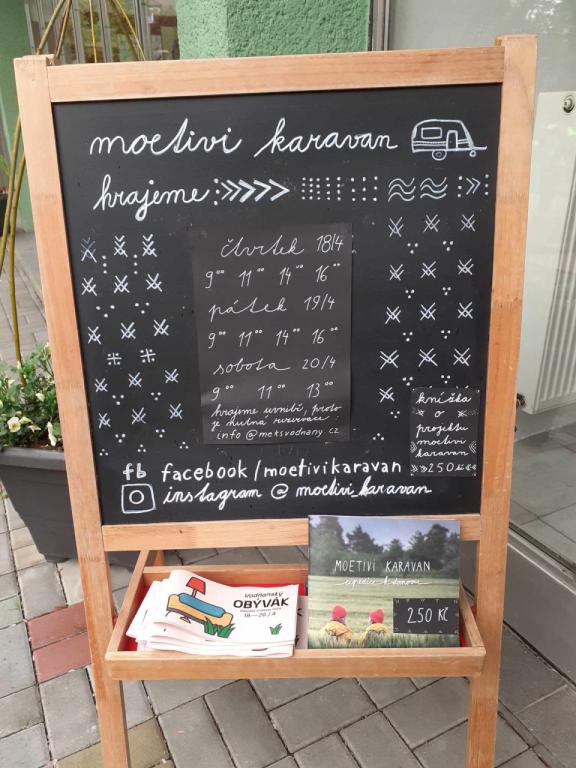 moetivi karavan
hrajeme:
čtvrtek 18/4
9⁰⁰ 11⁰⁰ 14⁰⁰ 16⁰⁰
pátek 19/4
9⁰⁰ 11⁰⁰ 14⁰⁰ 16⁰⁰
sobota 20/4
9⁰⁰ 11⁰⁰ 13⁰⁰
hrajeme uvnitř, proto
je nutná rezervace
info@meksvodnany.cz
knížka
o
projektu
moetivi
karavan
250 Kč
fb facebook/moetivikaravan
instagram @ moetivi karavan
Vodňanský
OBÝVÁK
18—20/4
MOETIVI KARAVAN
expedice k domovu
250 Kč